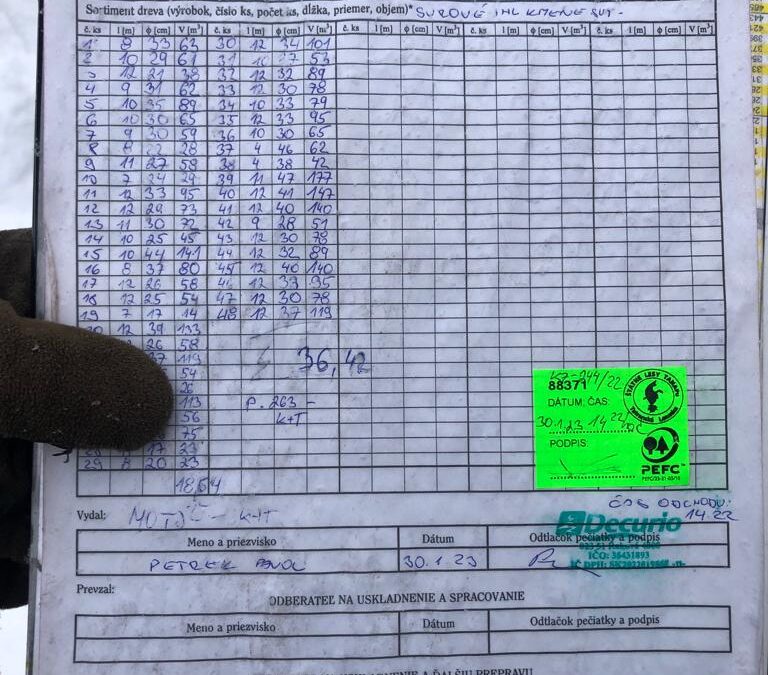 Sortiment dreva (výrobok, číslo ks, počet ks, dĺžka, priemer, objem)* SUROVÉ IHL KMENE
č. ks l [m] ϕ [cm] V [m³] č. ks l [m] ϕ [cm] V [m³] č. ks l [m] ϕ [cm] V [m³] č. ks l [m] ϕ [cm] V [m³] č. ks l [m] ϕ [cm] V [m³]
1 8 33 63 30 12 34 101
2 10 29 61 31 27 53
3 12 21 38 32 12 32 89
4 9 31 62 33 12 30 78
5 10 35 89 34 10 33 79
6 10 30 65 35 12 33 95
7 9 30 59 36 10 30 65
8 28 37 4 46 62
9 11 27 58 38 4 38 42
10 7 24 29 39 11 47 177
11 12 33 95 40 12 41 147
12 12 29 73 41 12 40 140
13 11 30 72 42 9 28 51
14 10 25 45 43 12 30 78
15 10 44 141 44 12 32 89
16 8 37 80 45 12 40 140
17 12 26 58 46 12 33 95
18 12 25 54 47 12 30 78
19 7 17 14 48 12 37 119
20 12 39 133
26 58
37 119 36,42
54
26
113 P. 263 -
56 K+T
75
17 23
29 8 20 23
18,64
88371
DÁTUM, ČAS:
30.1.23 14.22
PODPIS:
ŠTÁTNE LESY TANAPu
PEFC
ČAS ODCHODU:
14.22
Vydal: K+T
Decurio
Meno a priezvisko Dátum Odtlačok pečiatky a podpis
IČO: 36431893
PETREK 30.1.23
Prevzal:
ODBERATEĽ NA USKLADNENIE A SPRACOVANIE
Meno a priezvisko Dátum Odtlačok pečiatky a podpis